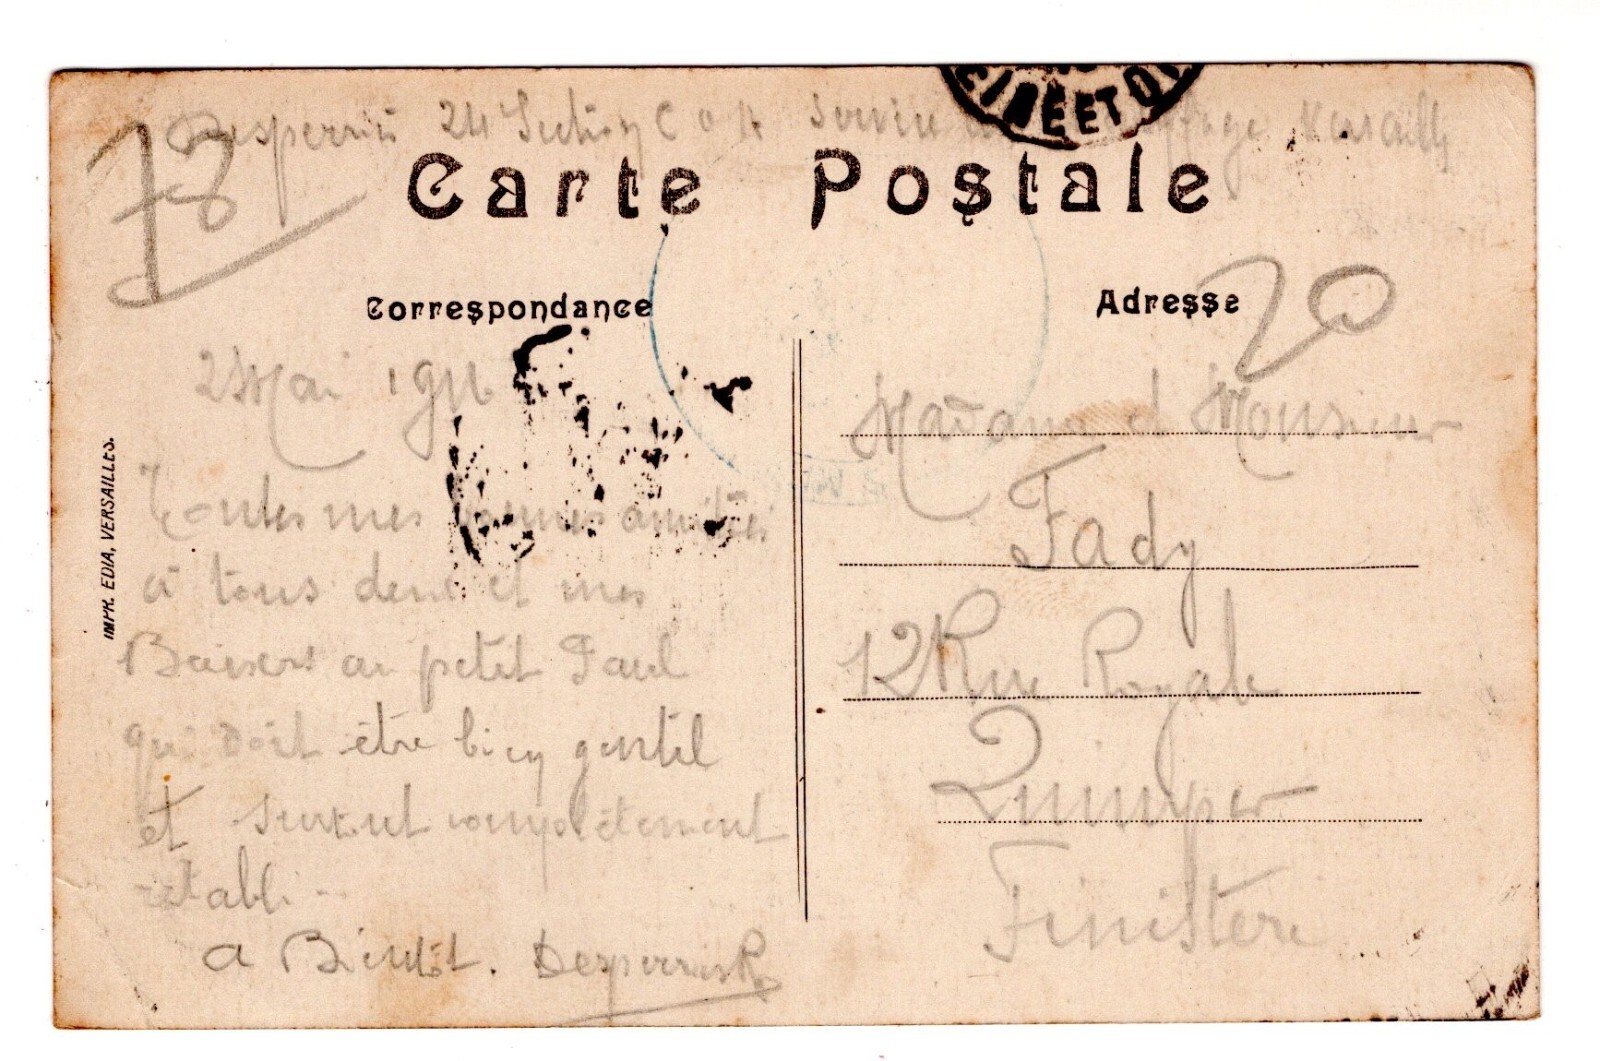 24 Section C O A Service Versailles
78
CINE ET O
Carte Postale
Correspondance
Adresse
20
2 Mai 1916
Toutes mes bonnes amitiés
à tous deux et mes
Baisers au petit Paul
qui doit être bien gentil
et surtout complètement
rétabli
a Bientôt.
IMPR. EDIA, VERSAILLES.
Madame et Monsieur
Fady
12 Rue Royale
Quimper
Finistère